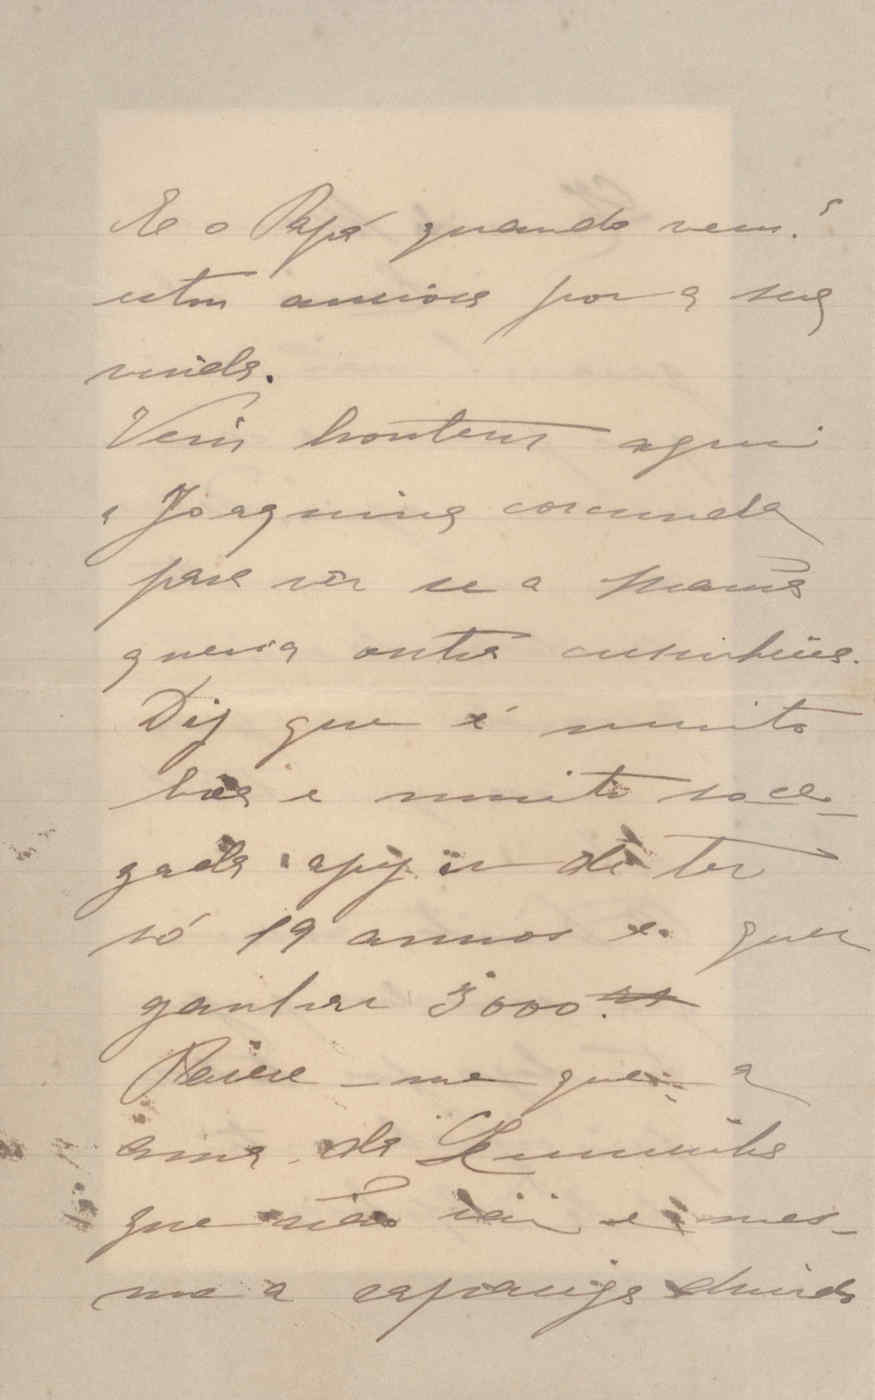 E o Papá quando vem?
estou anciosa por a sua
vinda.
Veiu hontem aqui
a Joaquina corcunda
para vêr se a Mamã
queria outra cusinheira.
Diz que é muito
boa e muito soce-
gada apezar de ter
só 19 annos e quer
ganhar 3000
Parece-me que a
ama da
que não vai e mes-
mo a